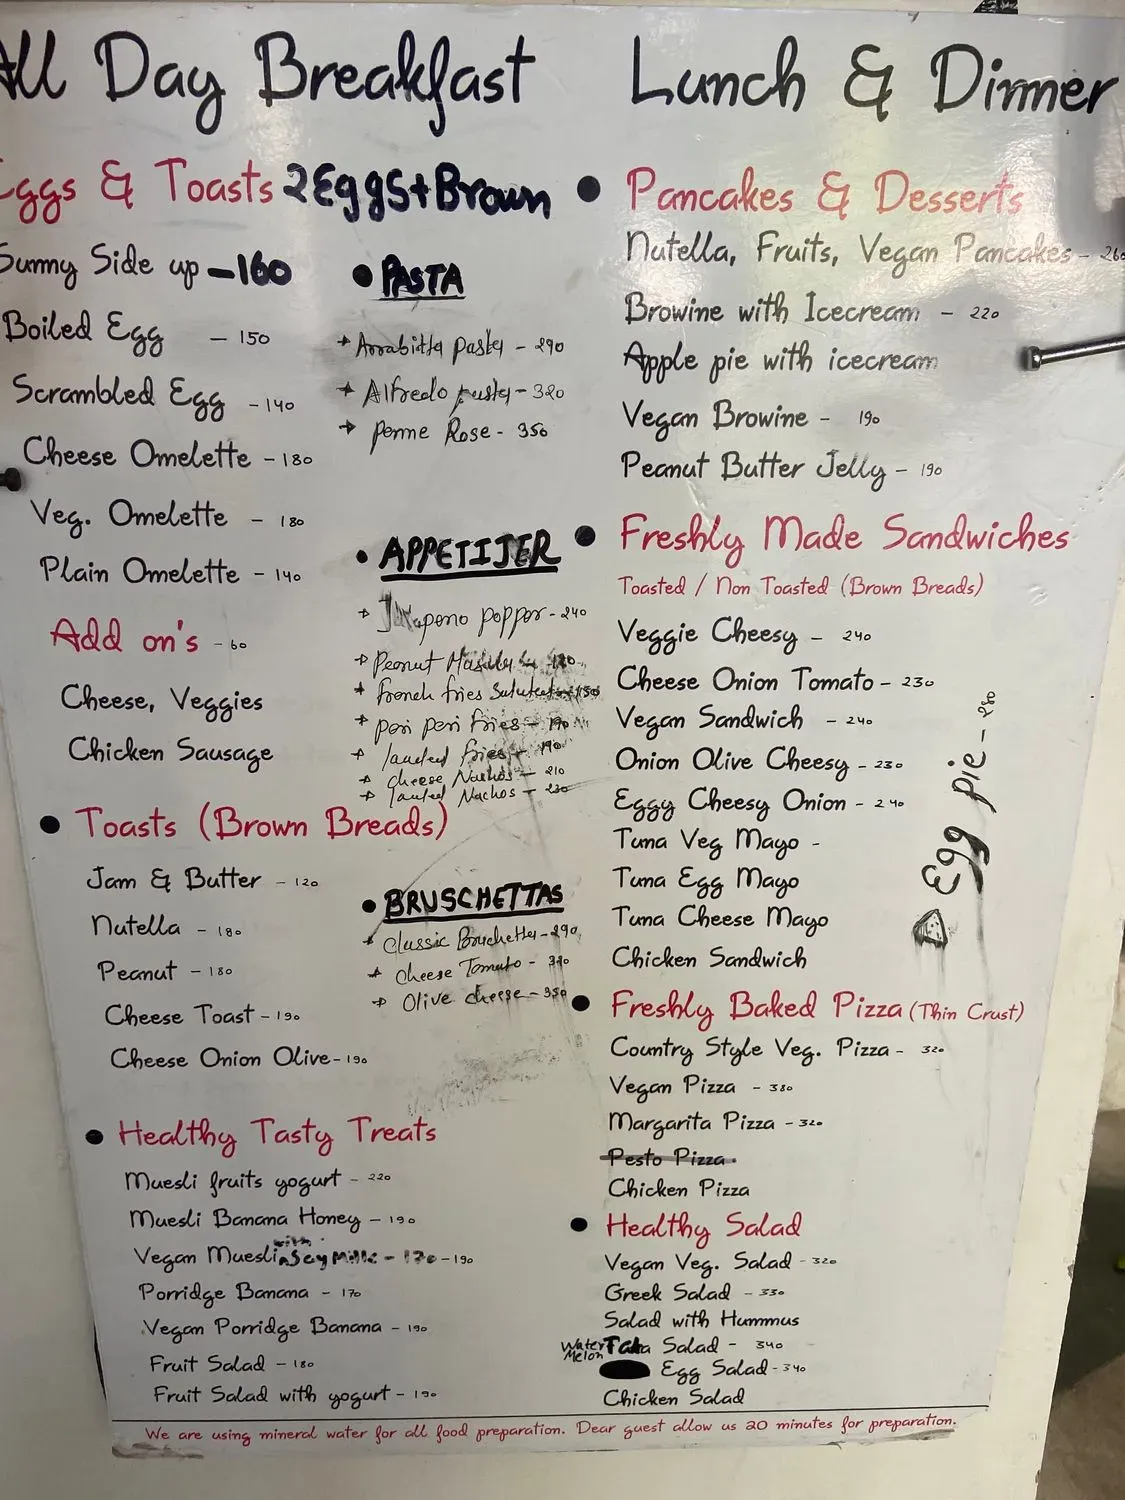 All Day Breakfast
Eggs & Toasts 2 Eggs + Brown
Sunny Side up - 160
Boiled Egg - 150
Scrambled Egg - 140
Cheese Omelette - 180
Veg. Omelette - 180
Plain Omelette - 140
Add on's - 60
Cheese, Veggies
Chicken Sausage
• Toasts (Brown Breads)
Jam & Butter - 120
Nutella - 180
Peanut - 180
Cheese Toast - 190
Cheese Onion Olive - 190
• Healthy Tasty Treats
Muesli fruits yogurt - 220
Muesli Banana Honey - 190
Vegan Muesli with Soy Milk - 170 - 190
Porridge Banana - 170
Vegan Porridge Banana - 190
Fruit Salad - 180
Fruit Salad with yogurt - 190
• PASTA
Arrabitta pasta - 290
Alfredo pasta - 320
penne Rose - 350
• APPETIJER
popper - 240
Peanut
french fries
peri peri fries - 190
loaded fries - 190
cheese Nachos - 210
loaded Nachos - 230
• BRUSCHETTAS
Classic Bruchetta - 290
Cheese Tomato -
Olive cheese - 350
Lunch & Dinner
• Pancakes & Desserts
Nutella, Fruits, Vegan Pancakes - 260
Browine with Icecream - 220
Apple pie with icecream
Vegan Browine - 190
Peanut Butter Jelly - 190
• Freshly Made Sandwiches
Toasted / Non Toasted (Brown Breads)
Veggie Cheesy - 240
Cheese Onion Tomato - 230
Vegan Sandwich - 240
Onion Olive Cheesy - 230
Eggy Cheesy Onion - 240
Tuna Veg Mayo -
Tuna Egg Mayo
Tuna Cheese Mayo
Chicken Sandwich
Egg pie - 280
• Freshly Baked Pizza (Thin Crust)
Country Style Veg. Pizza - 320
Vegan Pizza - 380
Margarita Pizza - 320
Pesto Pizza
Chicken Pizza
• Healthy Salad
Vegan Veg. Salad - 320
Greek Salad - 330
Salad with Hummus
Water Melon Salad - 340
Egg Salad - 340
Chicken Salad
We are using mineral water for all food preparation. Dear guest allow us 20 minutes for preparation.